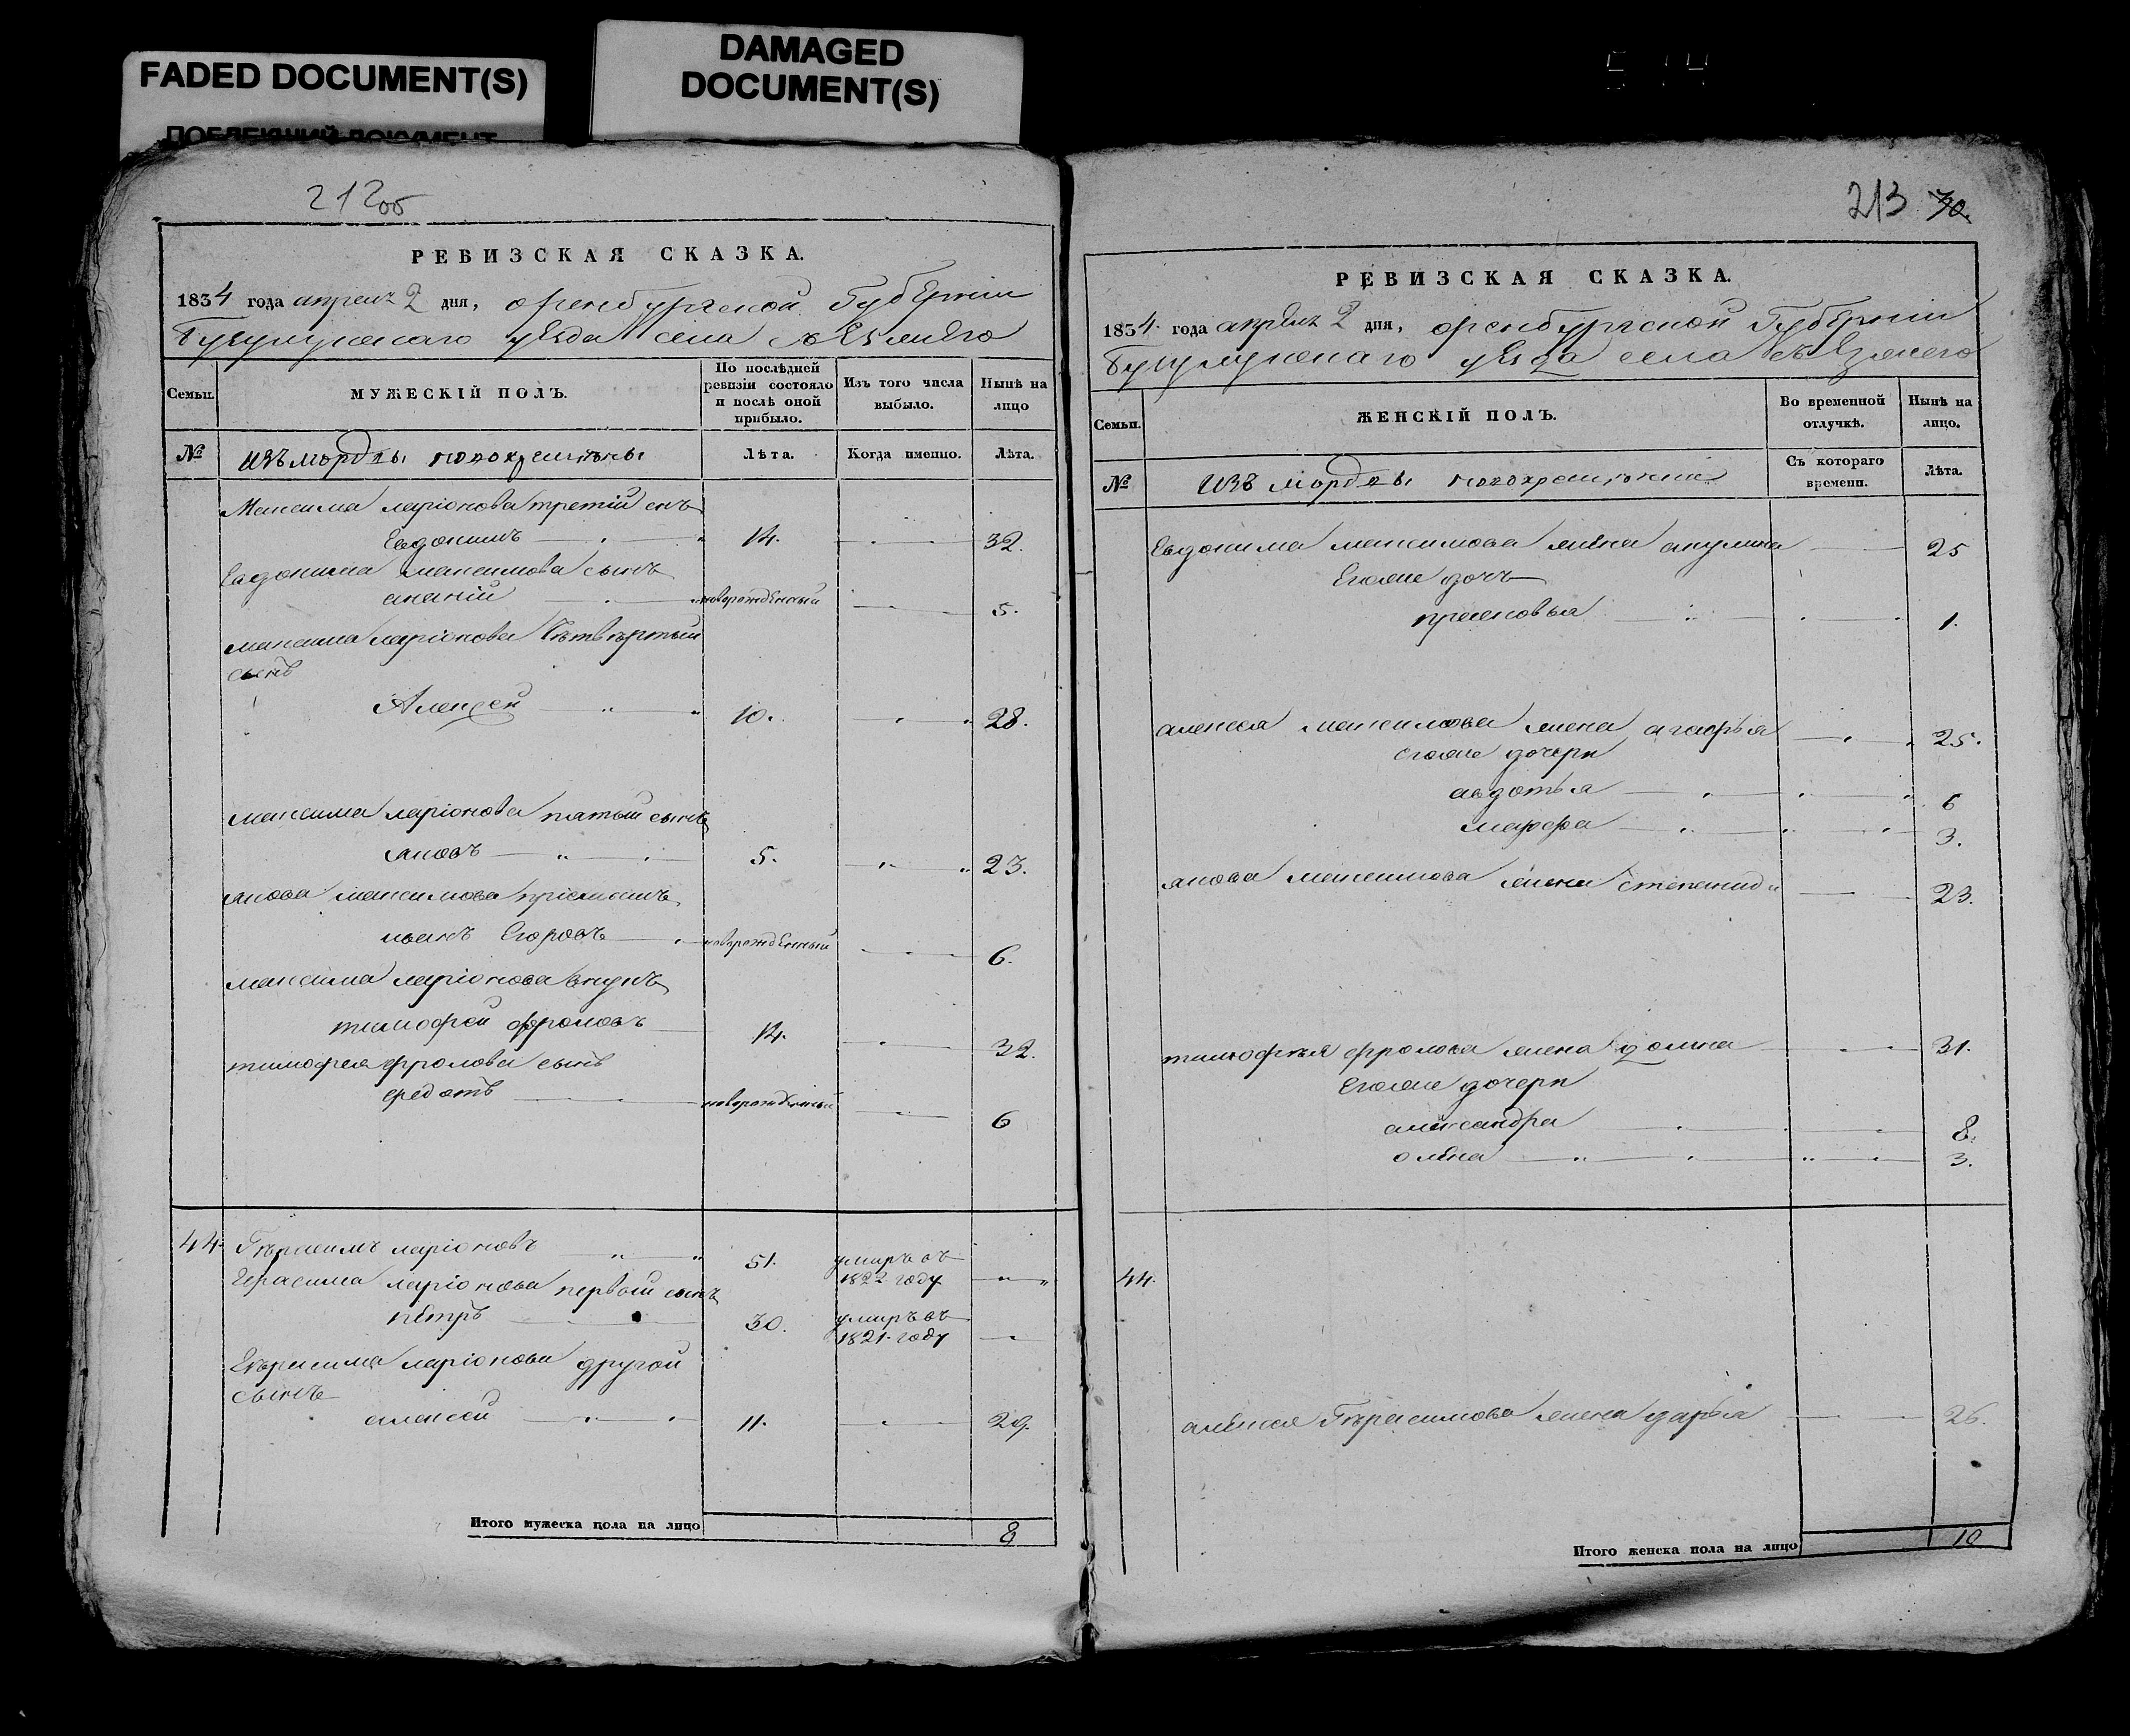 FADED DOCUMENT(S)
ПОБЛЕКШИЙ ДОКУМЕНТ
DAMAGED
DOCUMENT(S)
212об
РЕВИЗСКАЯ СКАЗКА.
1834 года апреля 2 дня, оренбургской губерніи
Бугульминскаго уезда села
Семьи.
МУЖЕСКІЙ ПОЛЪ.
По послѣдней ревизіи состояло и послѣ оной прибыло.
Изъ того числа выбыло.
Нынѣ на лицо
№
изъ мордвы новокрещены
Лѣта.
Когда именно.
Лѣта.
Максима ларіонова третій снъ
Евдокимъ 14. 32.
Евдокима максимова сынъ
ананій новорожденный 5.
максима ларіонова Четвертый
сынъ
Алексей 10. 28.
максима ларіонова пятый сынъ
яковъ 5. 23.
якова максимова пріемышъ
Егоровъ новорожденный 6.
максима ларіонова внукъ
тимофей фроловъ 14. 32.
тимофея фролова сынъ
федотъ новорожденный 6
44. Герасимъ ларіоновъ 51. умиръ въ 1822 году
Герасима ларіонова первый сынъ
петръ 30. умиръ въ 1821. году
Герасима ларіонова другой
сынъ
алексей 11. 29.
Итого мужеска пола на лицо 8
213 70.
РЕВИЗСКАЯ СКАЗКА.
1834. года апреля 2 дня, оренбургской губерніи
Бугульминскаго уезда села
Семьи.
ЖЕНСКІЙ ПОЛЪ.
Во временной отлучкѣ.
Нынѣ на лицо.
№
изъ мордвы новокрещены
Съ котораго времени.
Лѣта.
Евдокима максимова жена акулина 25
Егоже дочь
прасковья 1.
алексея максимова жена агафья 25.
Егоже дочери
авдотья 6
марфа 3.
якова максимова жена степанида 23.
тимофея фролова жена домна 31.
Егоже дочери
александра 8.
олена 3.
44.
алексея Герасимова жена дарья 26.
Итого женска пола на лицо 10